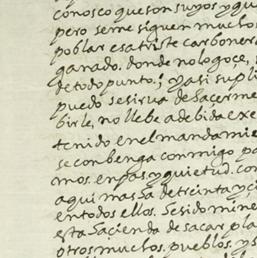 conosco que son suyos y qu
pero se me siguen muchos
poblar esa triste carboner
ganado. donde no logoço, s
de todo punto; y asi supli
puedo se sirua de haçerme
birle, no llebe a debida exe
tenido en el mandamie
se conbenga conmigo pa
mos. en pas y quietud. con
aqui mas ha de treinta y çi
en todos ellos. he sido mine
esta haçienda de sacar pla
otros muchos. pueblos. y s